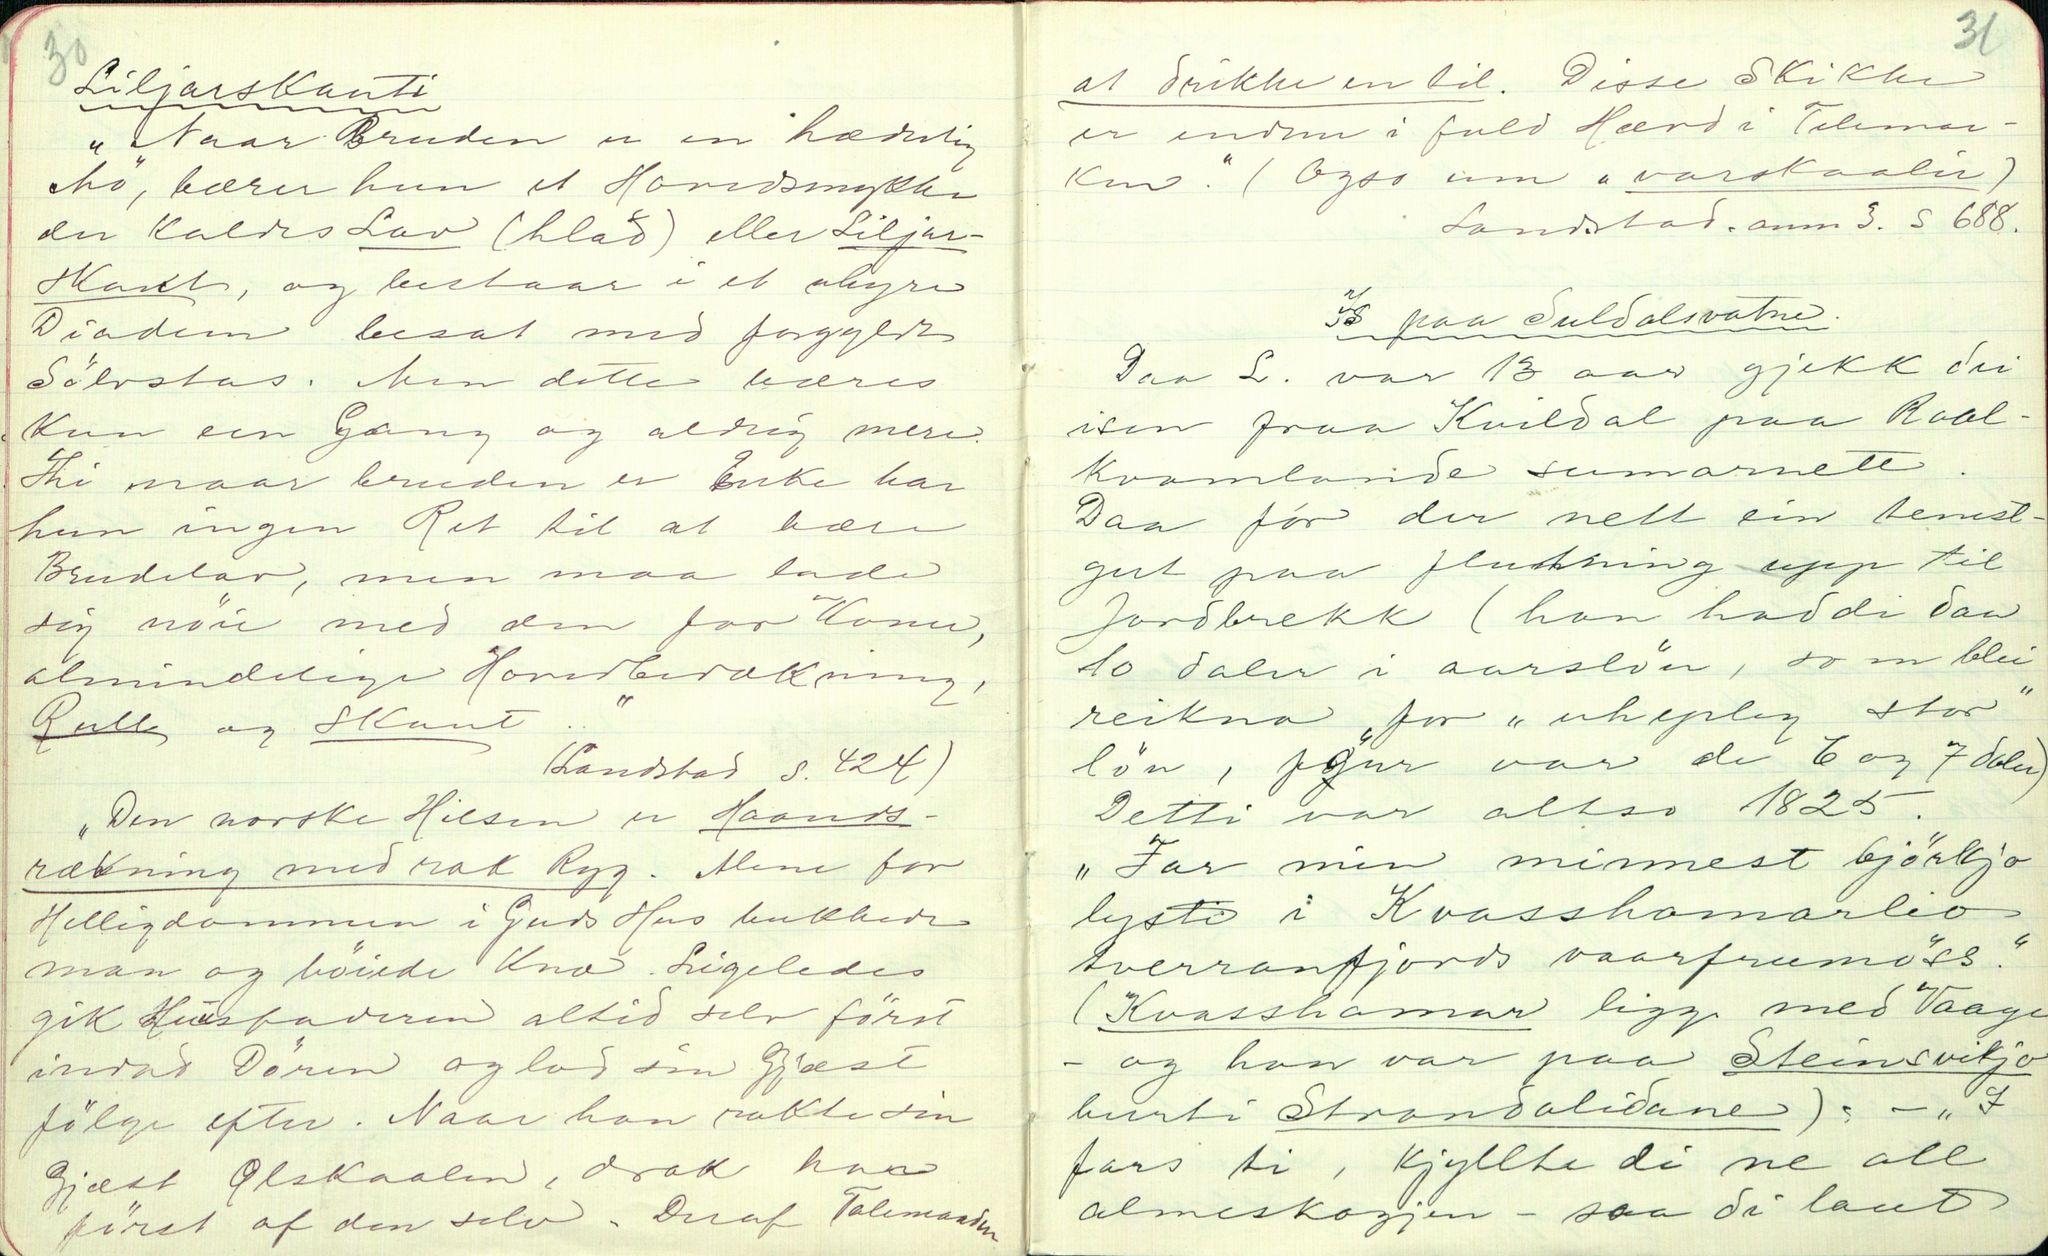 30
Liljarskauti
„Naar Bruden er en hæderlig
Mö, bærer hun et Hovedsmykke
der kaldes Lav (hlað) eller Liljar-
skaut, og bestaar i et uhyre
Diadem besat med forgyldt
Sölvstas. Men dette bæres
kun een Gang og aldrig mere.
Thi naar bruden er Enke har
hun ingen Ret til at bære
Brudelav, men maa lade
sig nöie med den for Koner,
almindelige Hovedbedækning,
Rulle og Skaut .."
(Landstad s. 424)
„Den norske Hilsen er Haands-
rækning med rak Ryg. Alene for
Helligdommen i Guds Hus bukkede
man og böiede Knæ. Ligeledes
gik Husfaderen altid selv först
indad Dören og lod sin Gjæst
fölge efter. Naar han rakte sin
Gjæst Ölskaalen, drak han
först af den selv. Deraf Talemaaden
31
at drikke en til. Disse Skikke
er endnu i fuld Hævd i Telemar-
ken." (Ogso um „varskaaler)
Landstad. anm 3. S 688.
Is paa Suldalsvatne.
Daa L. var 13 aar gjekk dei
isen fraa Kvildal paa Roal-
kvamlande sumarnett.
Daa fór der nett ein tenest-
gut paa flutning upp til
Jordbrekk (han haddi daa
10 daler i aarslön, som blei
reikna for „uhepleg stor"
lön, fyrr var de 6 og 7 daler)
Detti var altso 1825.
„Far min minnest björkjo
lysti i Kvasshamarlio
tverranfjords vaarfruemöss."
(Kvasshamar ligge med Vaage
- og han var paa Steinsvikjo
burti Strandalidane): - „I
fars ti, kjyllte di ne all
almeskogjen - saa di laut